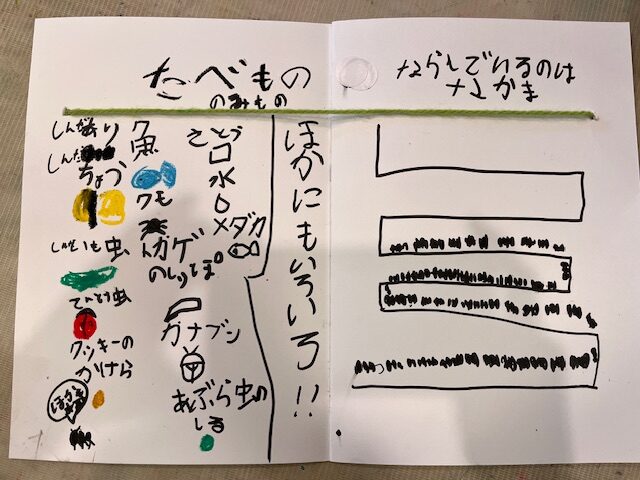 たべもの
のみもの
しんだあり
しんだ
ちょう
いも虫
てんとう虫
クッキーの
かけら
ク魚
クモ
トカゲ
のしっぽ
カナブン
あぶら虫の
しる
さとう
水
メダカ
ほかにもいろいろ!!
ならんでいるのは
なかま